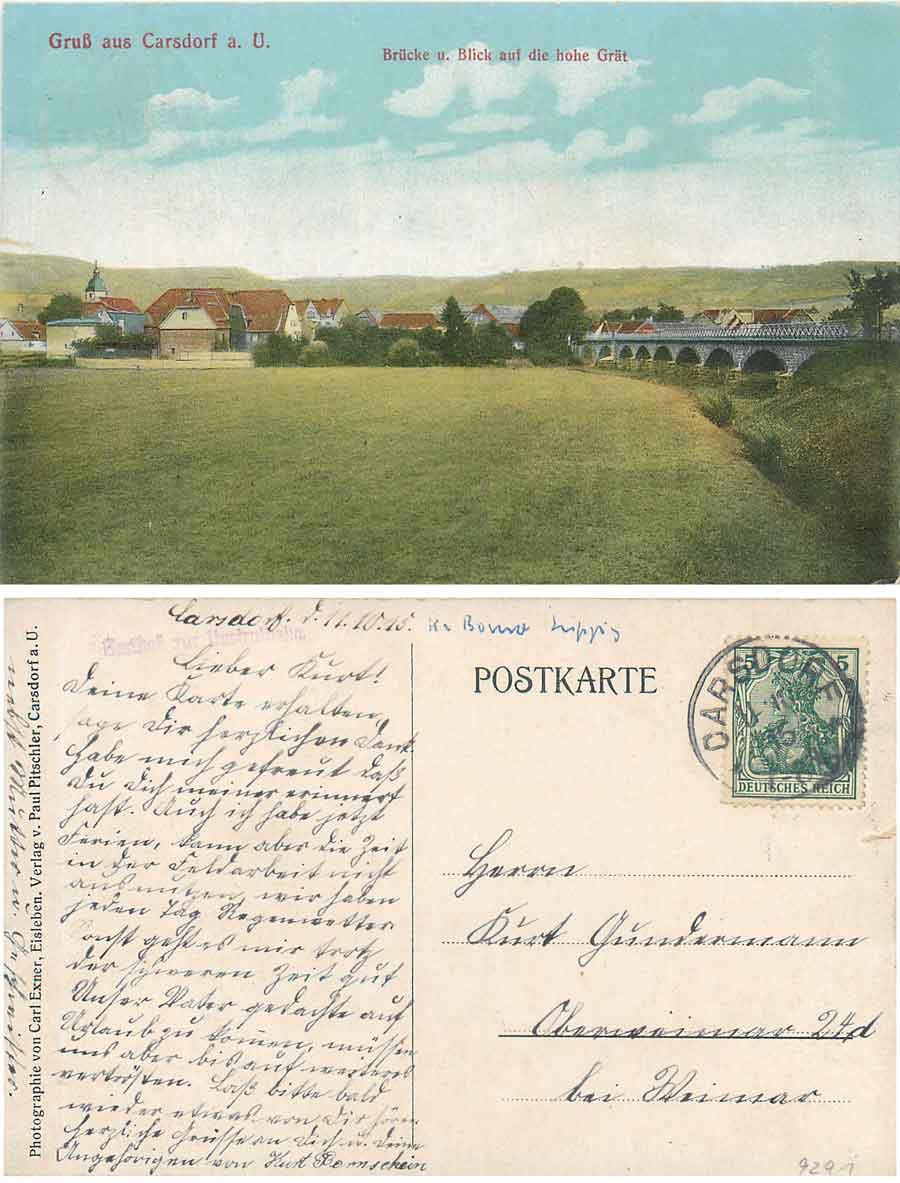 Gruß aus Carsdorf a. U.
Brücke u. Blick auf die hohe Grät
Carsdorf. d. 11.10.15.
Gasthof zur
Lieber Kurt!
Deine Karte erhalten,
sage Dir herzlichen Dank
habe mich gefreut daß
Du Dich meiner erinnert
hast. Auch ich habe jetzt
Ferien, kann aber die Zeit
in der Feldarbeit nicht
ausnutzen, wir haben
jeden Tag Regenwetter
sonst geht es mir trotz
der schweren Zeit gut
Unser Vater gedachte auf
Urlaub zu kommen, müssen
uns aber bis auf weiteres
vertrösten. Laß bitte bald
wieder etwas von Dir hören
Herzliche Grüssen Dich u. Deine
Angehörigen von Kurt Bornschein
nebst Mutter u. Geschwister.
Photographie von Carl Exner, Eisleben. Verlag v. Paul Pitschler, Carsdorf a. U.
POSTKARTE
CARSDORF
5 5
DEUTSCHES REICH
Herrn
Kurt Gundermann
Oberweimar 24d
bei Weimar
9291